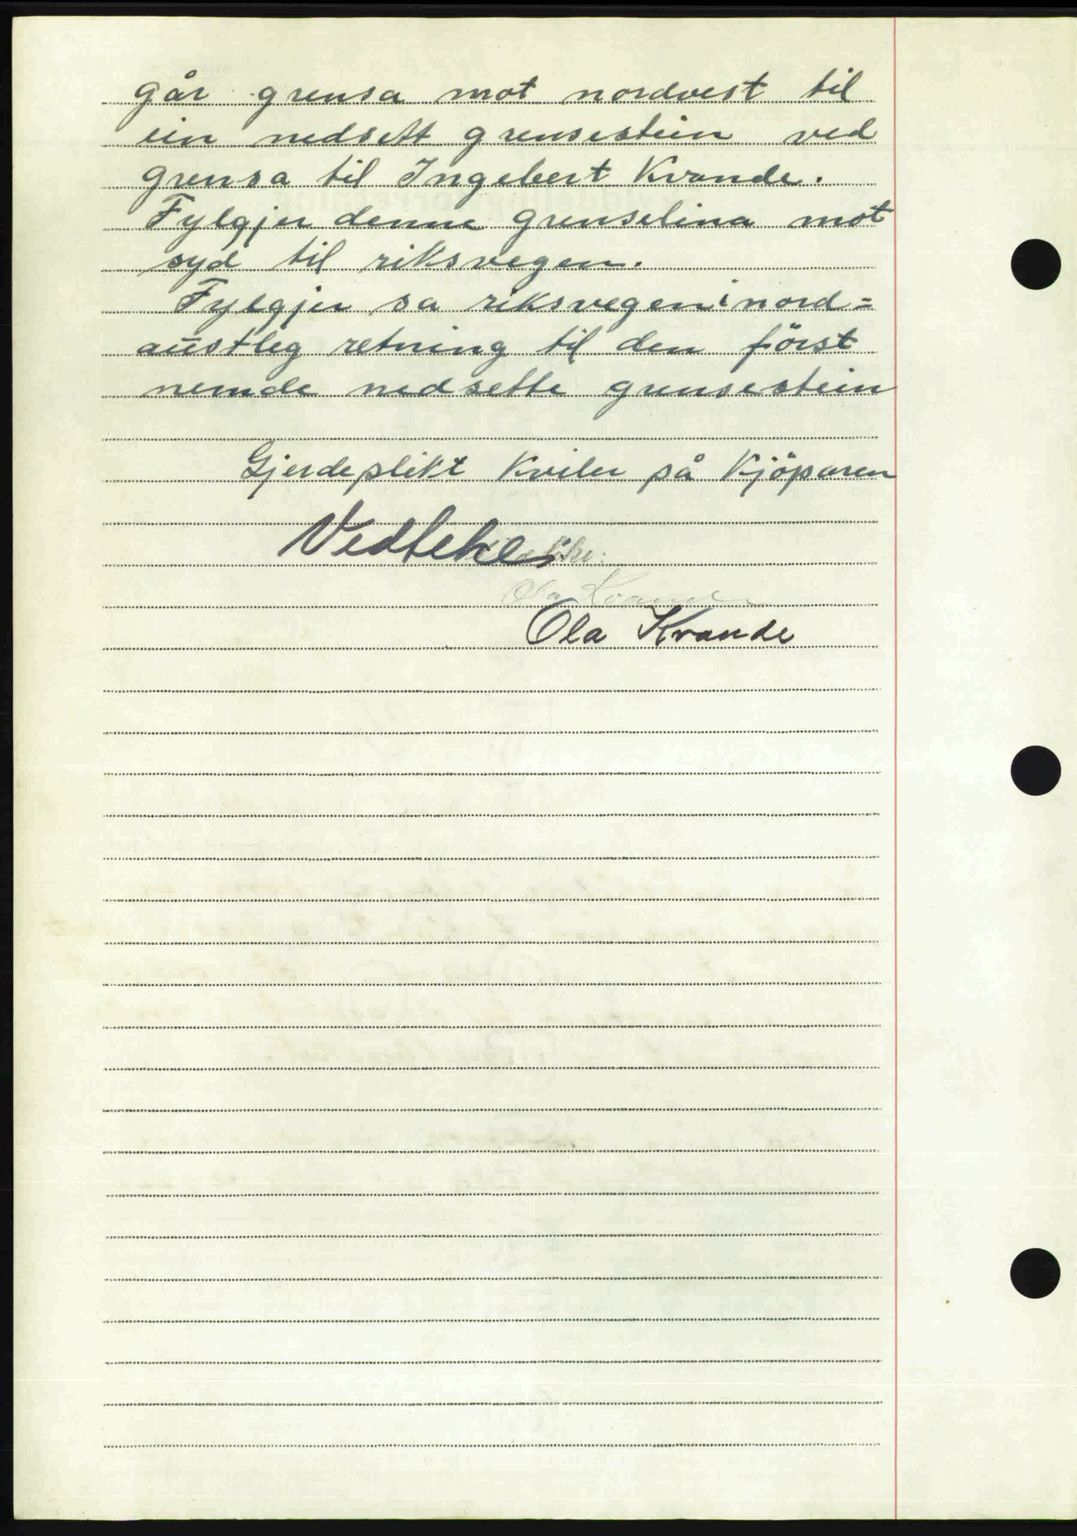 går grensa mot nordvest til
ein nedsett grensestein ved
grensa til Ingebert Kvande.
Fylgjer denne grenselina mot
syd til riksvegen.
Fylgjer sa riksvegen i nord=
austleg retning til den först
nemde nedsette grensestein
Gjerdeplikt Kviler på Kjöparen
Vedtekes
Ola Kvande
Ola Kvande